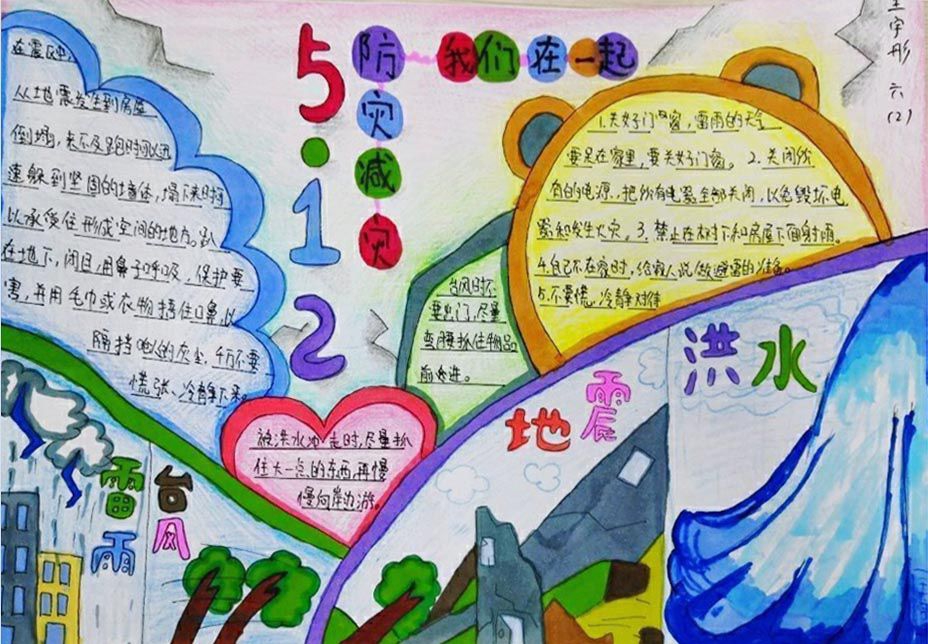 王宇彤
六(2)
5·12
防灾减灾
我们在一起
在震区中,
从地震发生到房屋
倒塌,来不及跑时可以迅
速躲到坚固的墙体,塌下来时可
以承受住形成空间的地方。趴
在地下,闭目,用鼻子呼吸,保护要
害,并用毛巾或衣物捂住口鼻,以
隔挡呛人的灰尘,千万不要
慌张、冷静下来。
1.关好门窗,雷雨的天气
要呆在家里,要关好门窗。2.关闭所
有的电源,把所有电器全部关闭,以免毁坏电
器和发生火灾。3.禁止在树下和房屋下面躲雨。
4.自己不在家时,给家人说做避雷的准备。
5.不要慌,冷静对待
台风时不
要出门,尽量
弯腰抓住物品
前进。
被洪水冲走时,尽量抓
住大一点的东西,再慢
慢向岸边游。
雷雨
台风
地震
洪水